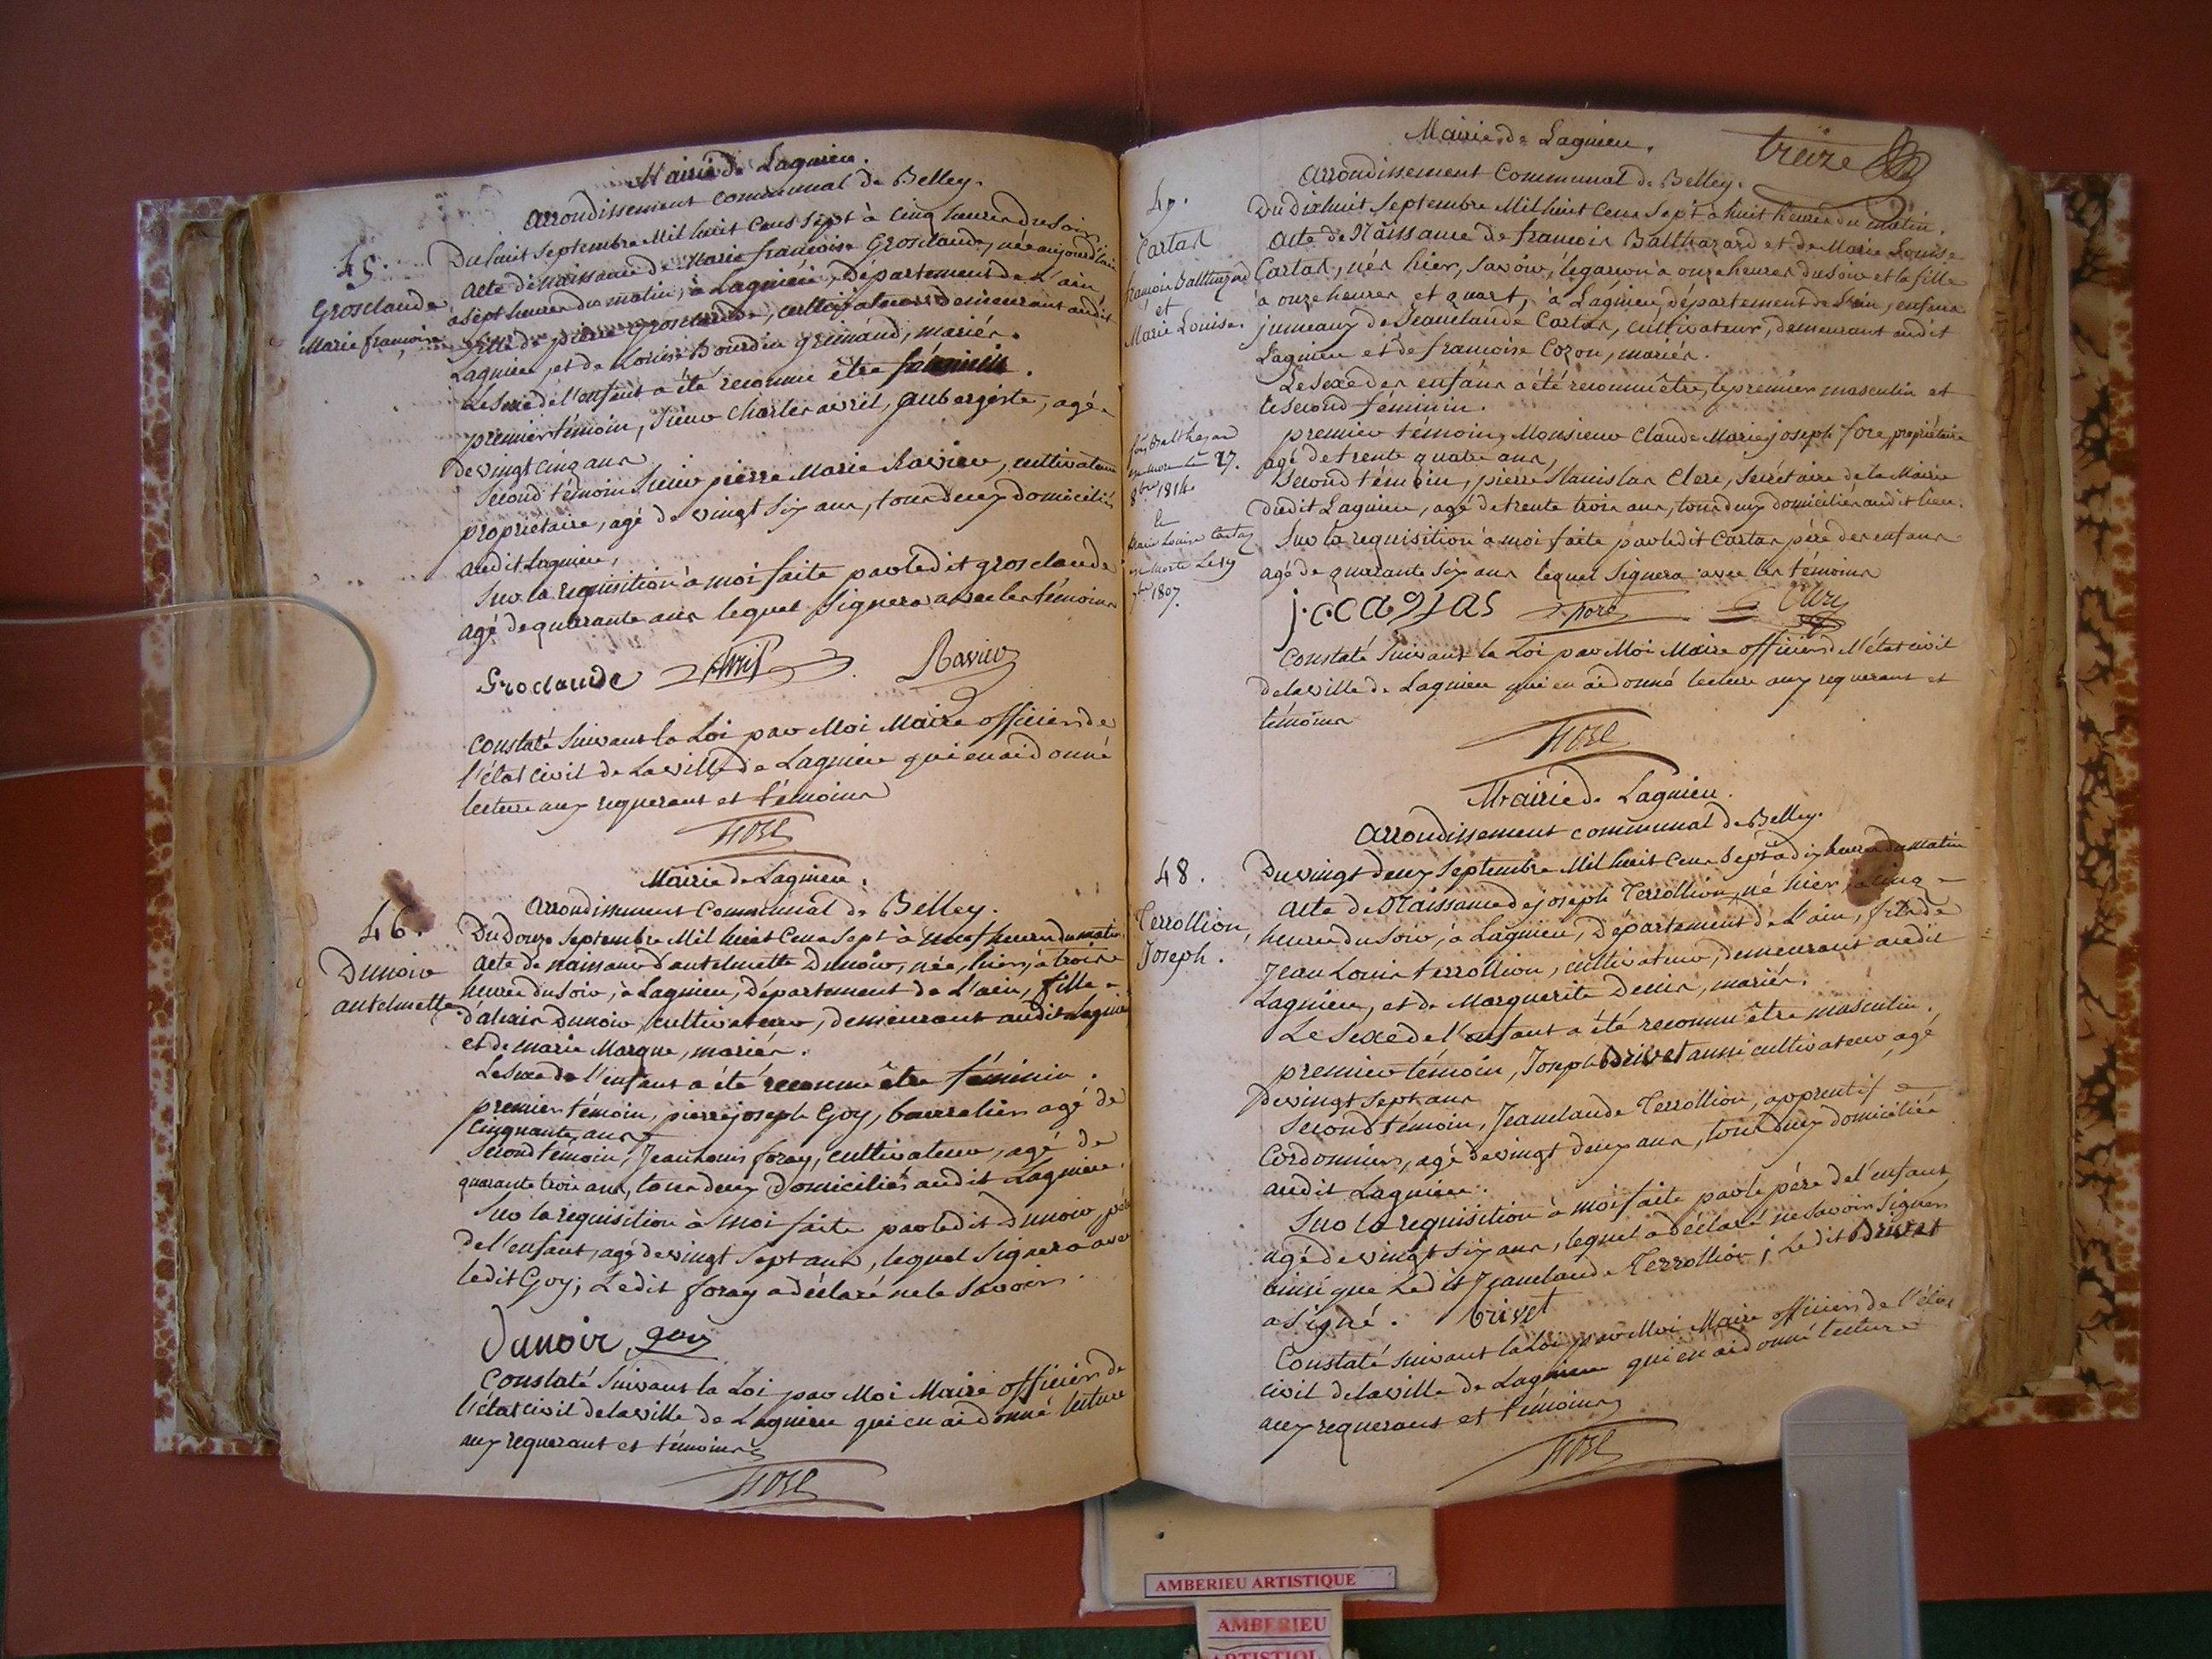 Mairie de Lagnieu.
arrondissement communal de Belley.
45.
Grosclaude
Marie françoise
Du huit Septembre Mil huit Cens Sept à Cinq heures du Soir
Acte de naissance de Marie françoise Grosclaude, née aujourd'hui
à sept heures du matin, à Lagnieu, Département de L'ain
fille de pierre Grosclaude, cultivateur demeurant audit
Lagnieu, et de Louise Bourdin grimand, mariés.
Le Sexe de l'enfant a été reconnu être féminin.
premier témoin, Sieur Charles avril, aubergiste, agé
de vingt cinq ans
Second témoin Sieur pierre Marie Ravier, cultivateur
propriétaire, agé de vingt Six ans, tous deux domiciliés
audit Lagnieu,
Sur la requisition à moi faite par ledit grosclaude
agé de quarante ans lequel Signera avec les témoins
Groclaude Avril Ravier
Constaté Suivant la Loi par Moi Maire officier de
l'état civil de la ville de Lagnieu qui en ai donné
lecture aux requerant et témoins
fore
Mairie de Lagnieu.
arrondissement Communal de Belley.
46.
Dunoir
antelmette
Du Douze Septembre Mil huit Cens Sept à neuf heures du matin,
Acte de naissance d'antelmette Dunoir, née, hier, à trois
heures du Soir, à Lagnieu, Département de L'ain, fille
d'alexis Dunoir, cultivateur, demeurant audit Lagnieu
et de marie Margue, mariés.
Le Sexe de l'enfant a été reconnu être féminin.
premier témoin, pierre joseph Goy, bourrelier agé de
Cinquante ans
Second témoin, Jean Louis foray, cultivateur, agé de
quarante trois ans, tous deux Domiciliés audit Lagnieu.
Sur la requisition à moi faite par ledit Dunoir, père
de l'enfant, agé de vingt Sept ans, lequel Signera avec
ledit Goy; Ledit foray a déclaré ne le Savoir.
Dunoir goy
Constaté Suivant la Loi par Moi Maire officier de
l'état civil de la ville de Lagnieu qui en ai donné lecture
aux requerant et témoins
fore
Mairie de Lagnieu.
treize
arrondissement Communal de Belley.
47.
Cartas
françois Balthazard
et
Marie Louise.
Du Dix huit Septembre Mil huit Cens Sept à huit heures du matin.
Acte de Naissance de françois Balthazard et de Marie Louise
Cartas, nés hier, Savoir, le garçon à onze heures du Soir et la fille
à onze heures et quart, à Lagnieu, département de L'ain, enfans
jumeaux de Jean claude Cartas, cultivateur, demeurant audit
Lagnieu et de françoise Cozon, mariés.
Le Sexe des enfans a été reconnu être, le premier masculin et
le second féminin.
fois Balthazard
est mort le 27.
8bre 1814
et
Marie Louise Cartas
est morte Le 19
7bre 1807.
premier témoin, Monsieur Claude Marie joseph fore, propriétaire
agé de trente quatre ans,
Second témoin, pierre Stanislas Clere, Secrétaire de la Mairie
dudit Lagnieu, agé de trente trois ans, tous deux domiciliés audit lieu.
Sur la requisition à moi faite par ledit Cartas père des enfans
agé de quarante Six ans lequel Signera avec les témoins
j.c cartas fore Clere
Constaté Suivant la Loi par Moi Maire officier de l'état civil
de la ville de Lagnieu qui en ai donné lecture aux requerant et
témoins
fore
Mairie de Lagnieu.
arrondissement communal de Belley.
48.
Terrollion,
Joseph.
Du vingt deux Septembre Mil huit Cens Sept à dix heures du matin
Acte de Naissance de joseph Terrollion, né hier, à cinq
heures du Soir, à Lagnieu, Département de L'ain, fils de
Jean Louis terrollion, cultivateur, demeurant audit
Lagnieu, et de Marguerite Denis, mariés.
Le Sexe de l'enfant a été reconnu être masculin.
premier témoin, Joseph Brivet aussi cultivateur agé
de vingt Sept ans
Second témoin, Jean claude Terrollion, apprentif
Cordonnier, agé de vingt deux ans, tous deux domiciliés
audit Lagnieu.
Sur la requisition à moi faite par le père de l'enfant
agé de vingt Six ans, lequel a déclaré ne Savoir Signer
ainsi que Ledit Jean claude Terrollion; Ledit Brivet
a Signé. brivet
Constaté Suivant la Loi par Moi Maire officier de l'état
civil de la ville de Lagnieu qui en ai donné lecture
aux requerans et témoins
fore
AMBERIEU ARTISTIQUE
AMBERIEU
ARTISTIQUE